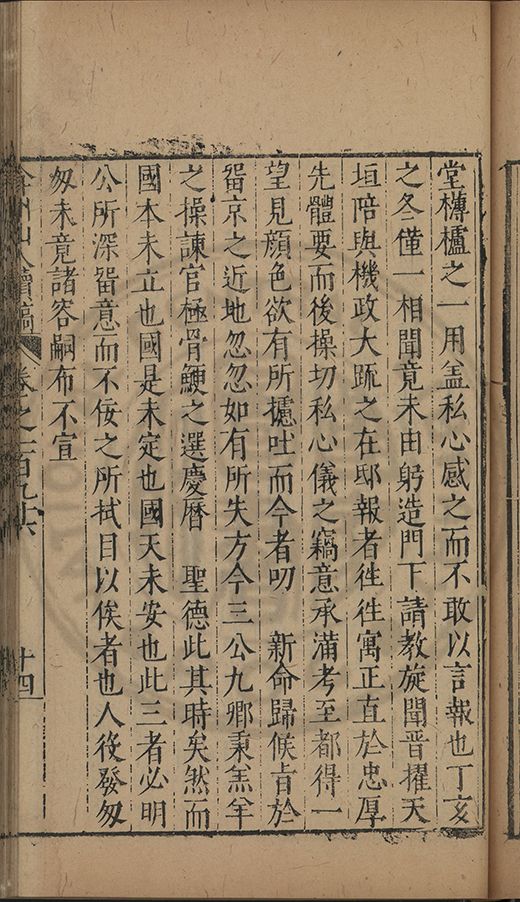 堂欂櫨之一用盖私心感之而不敢以言報也丁亥
之冬僅一相聞竟未由躬造門下請教旋聞晉擢天
垣陪與機政大䟽之在邸報者徃徃寓正直於忠厚
先體要而後操切私心儀之竊意承滿考至都得一
望見顔色欲有所攄吐而今者叨　新命歸候旨於
畱京之近地忽忽如有所失方今三公九卿秉羔羊
之操諫官極骨鯁之選慶曆　聖德此其時矣然而
國本未立也國是未定也國天未安也此三者必明
公所深畱意而不佞之所拭目以俟者也人役發匆
匆未竟諸容嗣布不宣
弇州山人續稿　卷之一百九十六　十四